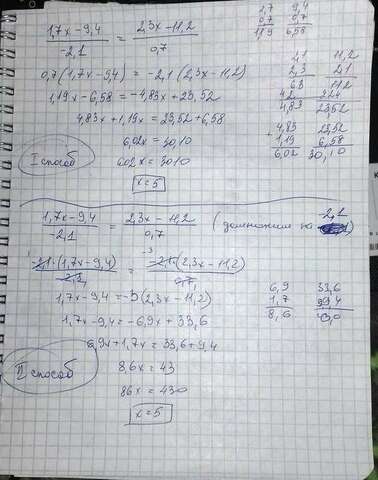 1,7x-9,4 / -2,1 = 2,3x-11,2 / 0,7
0,7(1,7x-9,4) = -2,1(2,3x-11,2)
1,19x-6,58 = -4,83x+23,52
4,83x+1,19x = 23,52+6,58
6,02x = 30,10
602x = 3010
I способ
x=5
1,7 9,4
0,7 0,7
1,19 6,58
2,1 11,2
2,3 2,1
63 112
42 224
4,83 23,52
4,83 23,52
1,19 6,58
6,02 30,10
1,7x-9,4 / -2,1 = 2,3x-11,2 / 0,7 (домножим на -2,1)
-2,1·(1,7x-9,4) / -2,1 = -2,1·(2,3x-11,2) / 0,7
-3
1,7x-9,4 = -3(2,3x-11,2)
1,7x-9,4 = -6,9x+33,6
6,9x+1,7x = 33,6+9,4
II способ
8,6x = 43
86x = 430
x=5
6,9 33,6
1,7 9,4
8,6 43,0